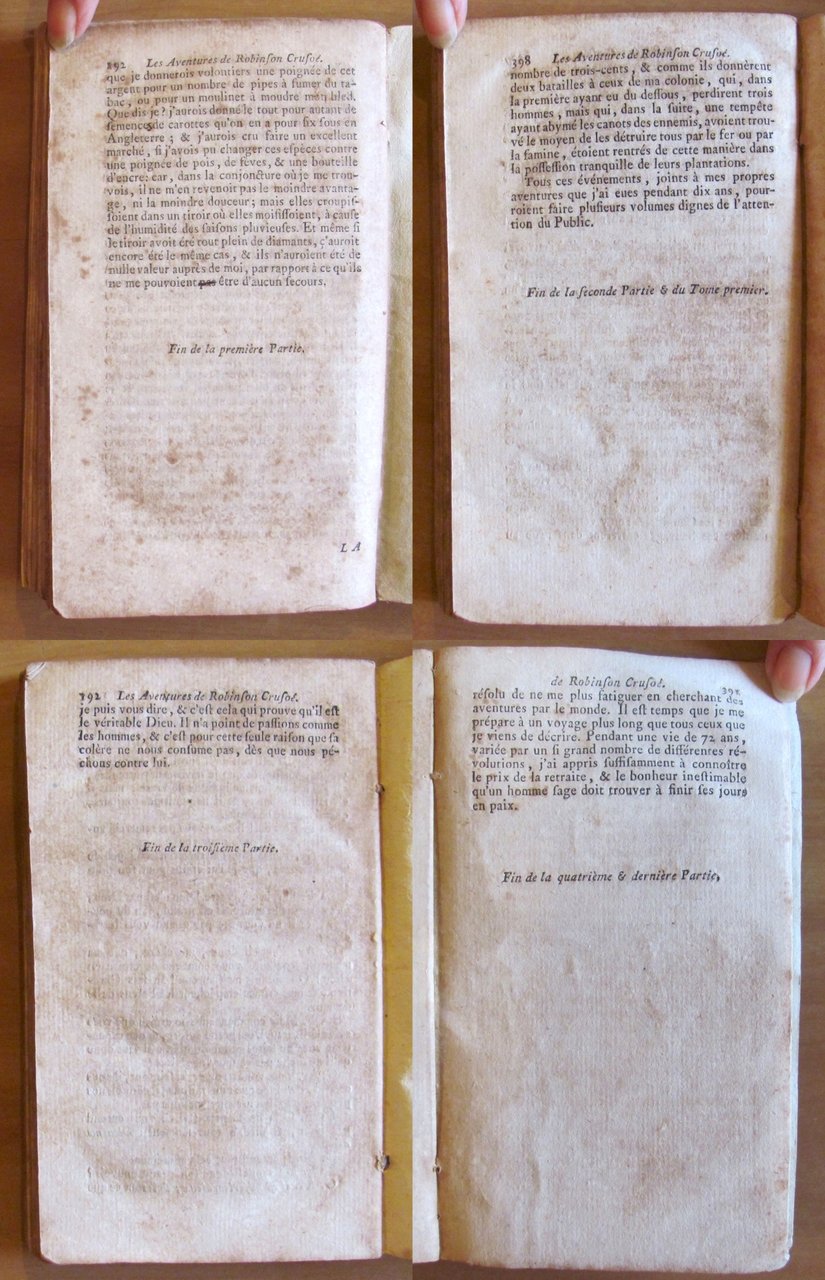 192 Les Aventures de Robinſon Cruſoé.
que je donnerois volontiers une poignée de cet
argent pour un nombre de pipes à fumer du ta-
bac, ou pour un moulinet à moudre mon bled.
Que dis je? j'aurois donné le tout pour autant de
ſemences de carottes qu'on en a pour ſix ſous en
Angleterre; & j'aurois cru faire un excellent
marché, ſi j'avois pu changer ces eſpèces contre
une poignée de pois, de fèves, & une bouteille
d'encre: car, dans la conjoncture où je me trou-
vois, il ne m'en revenoit pas le moindre avanta-
ge, ni la moindre douceur; mais elles croupiſ-
ſoient dans un tiroir où elles moiſiſſoient, à cauſe
de l'humidité des ſaiſons pluvieuſes. Et même ſi
le tiroir avoit été tout plein de diamants, ç'auroit
encore été le même cas, & ils n'auroient été de
nulle valeur auprès de moi, par rapport à ce qu'ils
ne me pouvoient pas être d'aucun ſecours.
Fin de la première Partie.
L A
398 Les Aventures de Robinſon Cruſoé.
nombre de trois-cents, & comme ils donnèrent
deux batailles à ceux de ma colonie, qui, dans
la première ayant eu du deſſous, perdirent trois
hommes, mais qui, dans la ſuite, une tempête
ayant abymé les canots des ennemis, avoient trou-
vé le moyen de les détruire tous par le fer ou par
la famine, étoient rentrés de cette manière dans
la poſſeſſion tranquille de leurs plantations.
Tous ces événements, joints à mes propres
aventures que j'ai eues pendant dix ans, pour-
roient faire pluſieurs volumes dignes de l'atten-
tion du Public.
Fin de la ſeconde Partie & du Tome premier.
192 Les Aventures de Robinſon Cruſoé.
je puis vous dire, & c'eſt cela qui prouve qu'il eſt
le véritable Dieu. Il n'a point de paſſions comme
les hommes, & c'eſt pour cette ſeule raiſon que ſa
colère ne nous conſume pas, dès que nous pé-
chons contre lui.
Fin de la troiſième Partie.
de Robinſon Cruſoé.
réſolu de ne me plus fatiguer en cherchant des
aventures par le monde. Il eſt temps que je me
prépare à un voyage plus long que tous ceux que
je viens de décrire. Pendant une vie de 72 ans,
variée par un ſi grand nombre de différentes ré-
volutions, j'ai appris ſuffiſamment à connoître
le prix de la retraite, & le bonheur ineſtimable
qu'un homme ſage doit trouver à finir ſes jours
en paix.
Fin de la quatrième & dernière Partie,